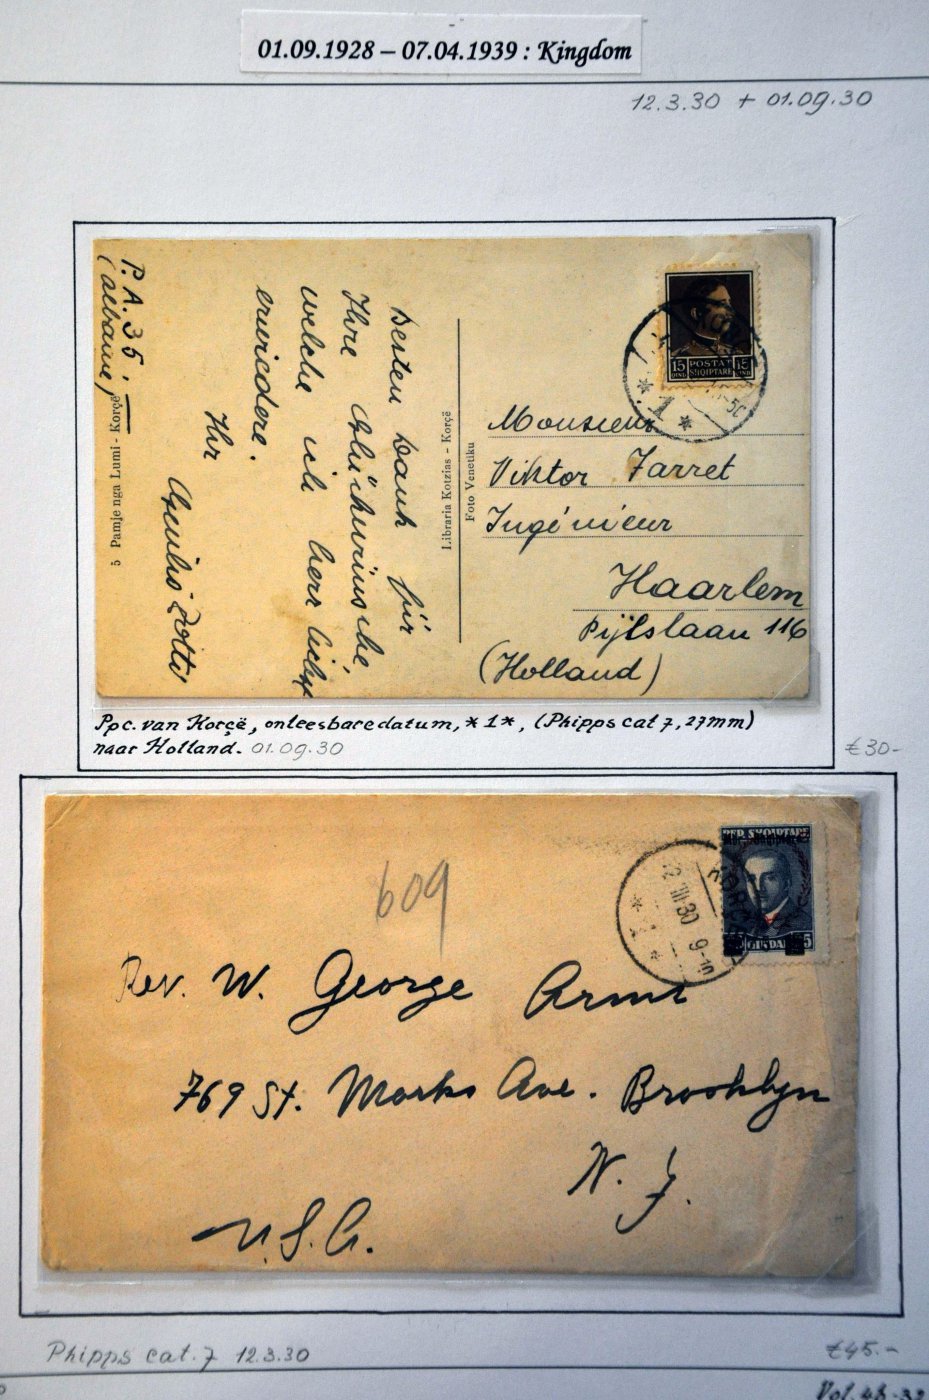 01.09.1928 – 07.04.1939 : Kingdom
12.3.30 + 01.09.30
P.A.35
(Albanie)
Besten Dank für
Ihre Glückwünsche
welche ich herzlichst
erwiedere.
Ihr
5 Pamje nga Lumi - Korçë
Libraria Kotzias – Korçë
Foto Venetiku
15 POSTAT 15
QIND SHQIPTARE QIND
*1*
Monsieur
Viktor Jarret
Ingénieur
Haarlem
Pijlslaan 116
(Holland)
Ppc. van Korçë, onleesbare datum, *1*, (Phipps cat 7, 27mm)
naar Holland. 01.09.30
€30-
REP. SHQIPTARE
KORÇË
12 III 30 9-
*1*
609
Rev. W. George
769 St. Marks Ave. Brooklyn
N. J.
U.S.A.
Phipps cat.7 12.3.30
€45.-